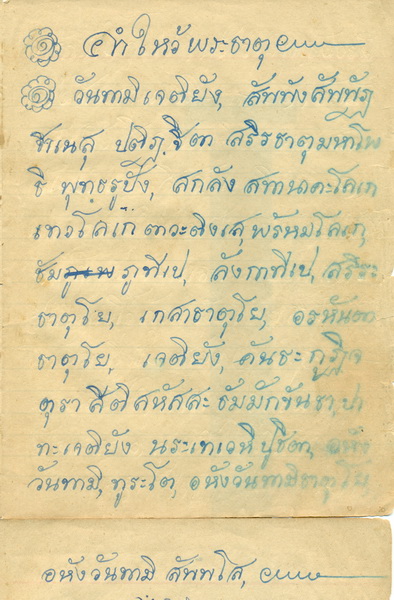 ๑ คำไหว้พระธาตุ
๑ วันทามิเจติยัง, สัพพังสัพพัฏ
ฐาเนสุ ปติฏฺฐิตา สรีรธาตุมหาโพ
ธิ พุทฺธรูปัง, สกลัง สทานาคะโลเก
เทวโลเก ตาวะติงเส, พรัหมโลเก,
ชัมภูทีเป, ลังกาทีเป, สรีระ
ธาตุโย, เกสาธาตุโย, อรหันตา
ธาตุโย, เจติยัง, คันธะกุฏิจ
ตุรา สีติสหัสสะ ธัมมักขันธา, ปา
ทะเจติยัง นระเทเวหิปูชิตา, อหัง
วันทามิ, ทูระโต, อหังวันทามิธาตุโย,
อหังวันทามิ สัพพโส,